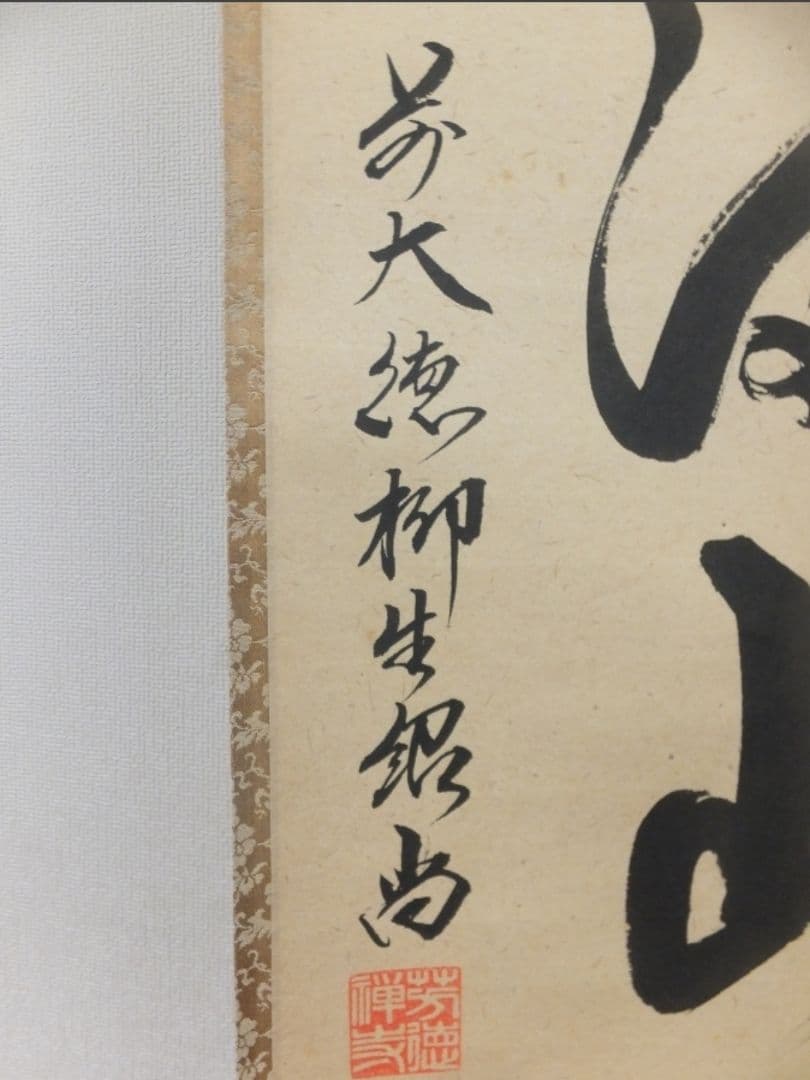 前大徳柳生紹尚
芳徳禅寺